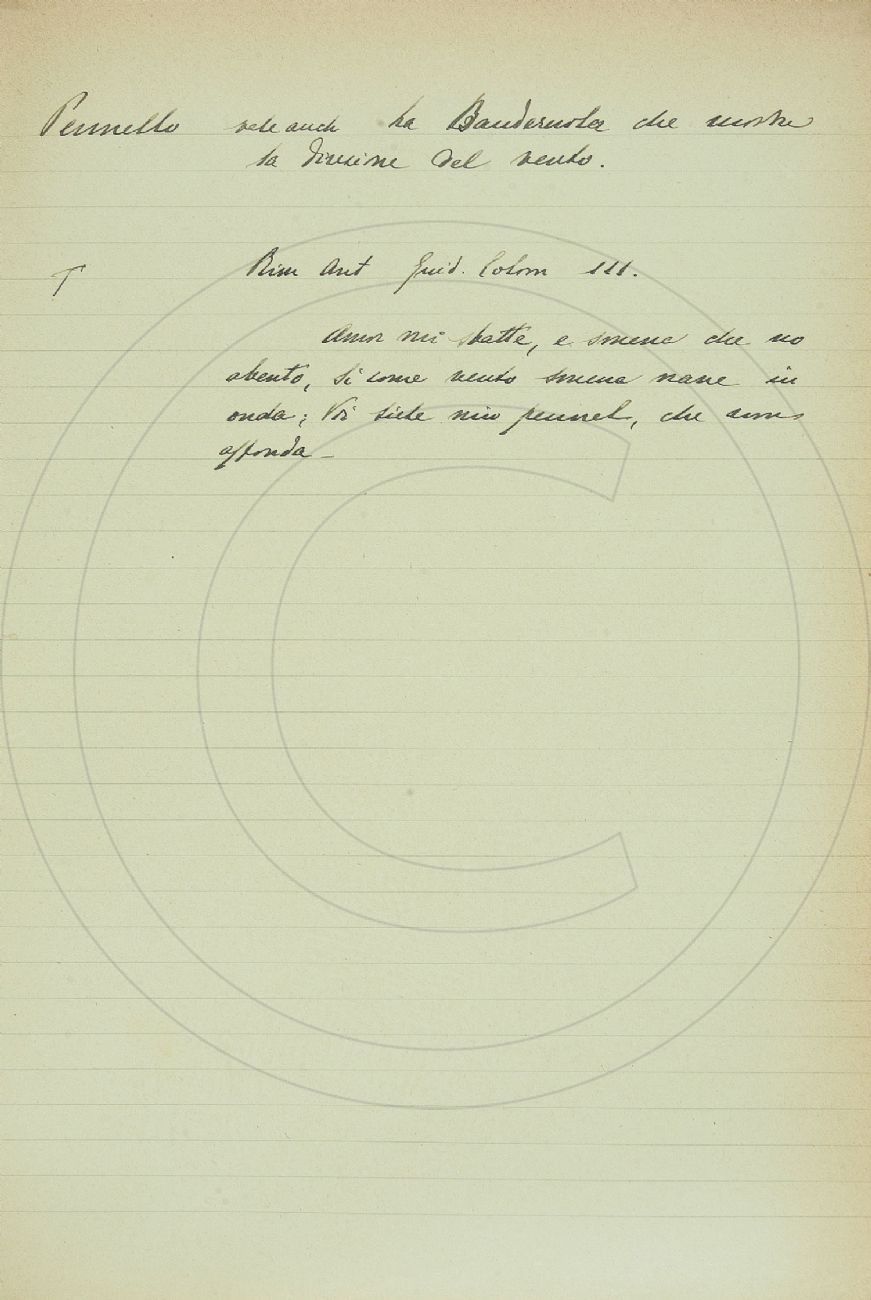 Pennello vale anch la Banderuola che mostra
la direzione del vento.
T Rim Ant Guid. Colom 111.
Amor mi sbatte, e smena che no
abento, si come vento smena nave in
onda; Voi siete mio pennel, che non
affonda –